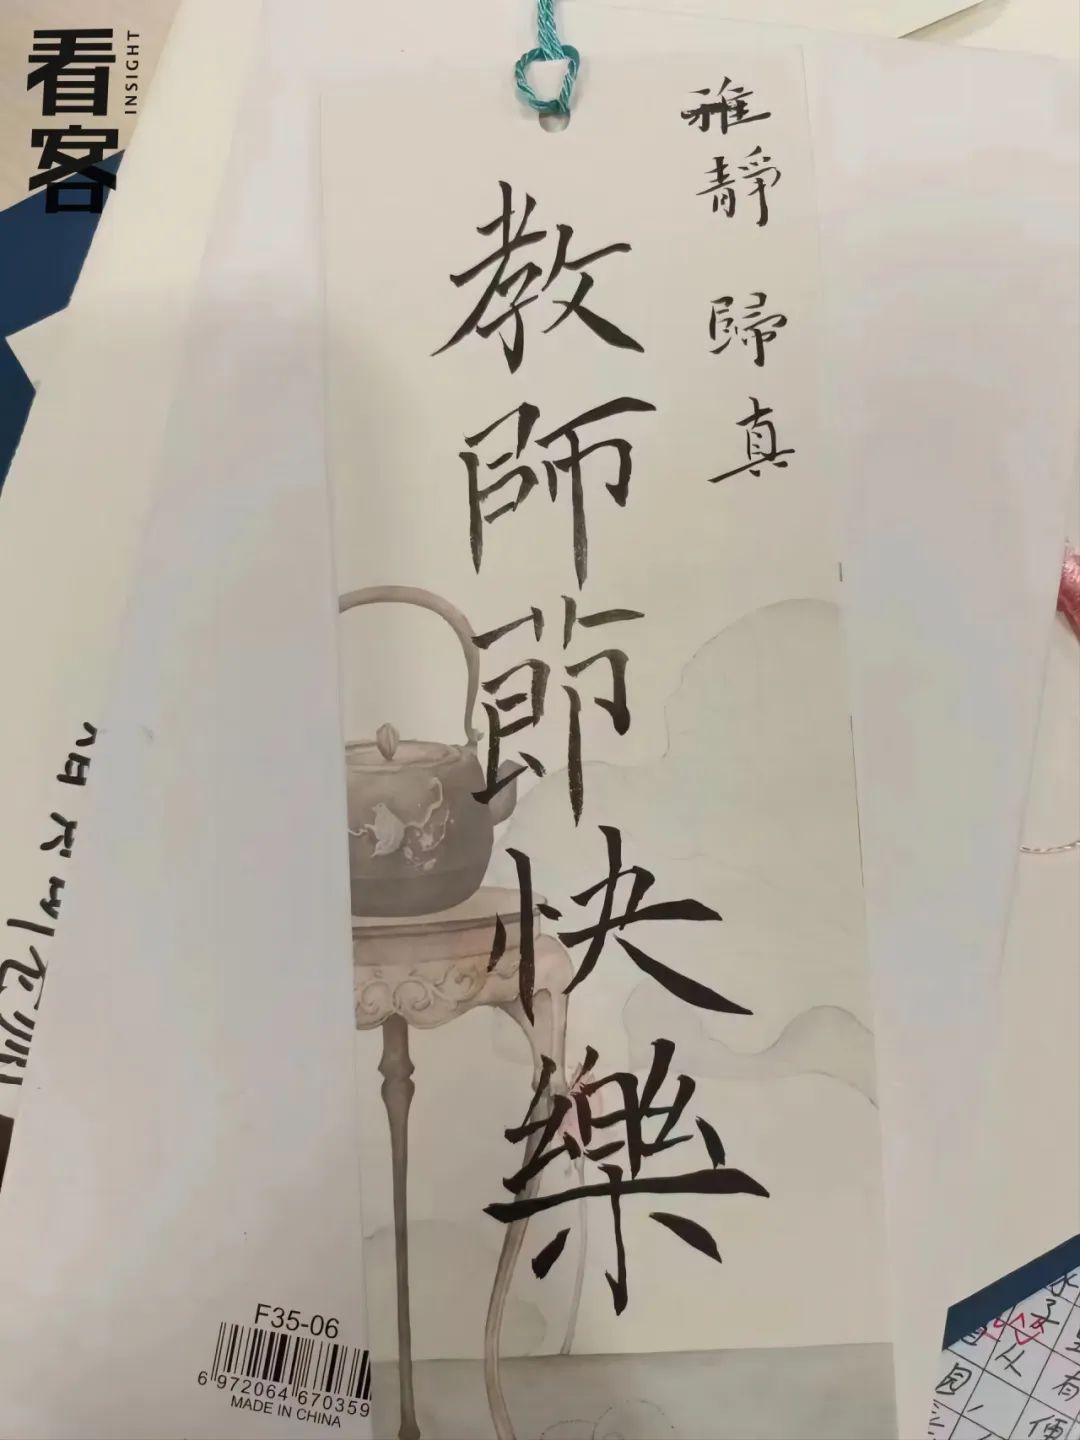 看客
INSIGHT
雅靜 歸真
教師節快樂
F35-06
6 972064 670359
MADE IN CHINA